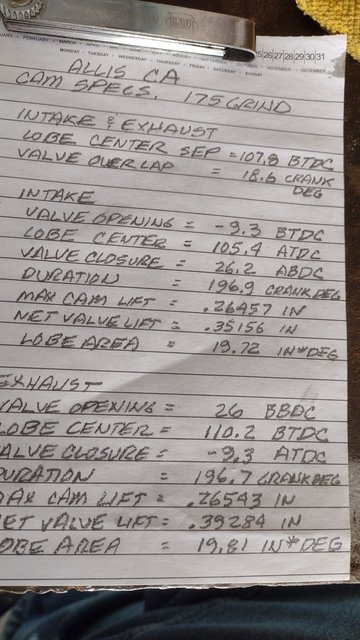 FEBRUARY - MARCH
26 27 28 29 30 31
NOVEMBER - DECEMBER
MONDAY - TUESDAY - WEDNESDAY - THURSDAY - FRIDAY - SATURDAY - SUNDAY
ALLIS CA
CAM SPECS. 175 GRIND
INTAKE & EXHAUST
LOBE CENTER SEP = 107.8 BTDC
VALVE OVERLAP = 18.6 CRANK
DEG
INTAKE
VALVE OPENING = -9.3 BTDC
LOBE CENTER = 105.4 ATDC
VALVE CLOSURE = 26.2 ABDC
DURATION = 196.9 CRANK DEG
MAX CAM LIFT = .26457 IN
NET VALVE LIFT = .35156 IN
LOBE AREA = 19.72 IN*DEG
EXHAUST
VALVE OPENING = 26 BBDC
LOBE CENTER = 110.2 BTDC
VALVE CLOSURE = -9.3 ATDC
DURATION = 196.7 CRANK DEG
MAX CAM LIFT = .26543 IN
NET VALVE LIFT = .39284 IN
LOBE AREA = 19.81 IN*DEG